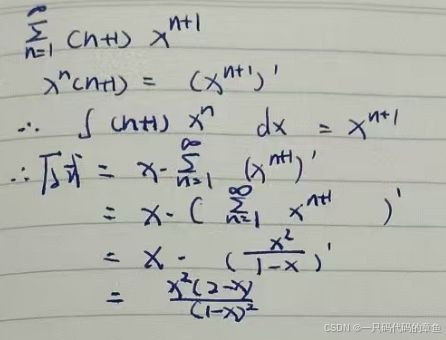 ∞∑n=1 (n+1) x^{n+1}
x^n(n+1) = (x^{n+1})'
∴ ∫ (n+1) x^n dx = x^{n+1}
∴ 原式 = x·∞∑n=1 (x^{n+1})'
= x·( ∞∑n=1 x^{n+1} )'
= x· (x^2/(1-x))'
= x^2(2-x)/(1-x)^2
CSDN @一只码代码的章鱼